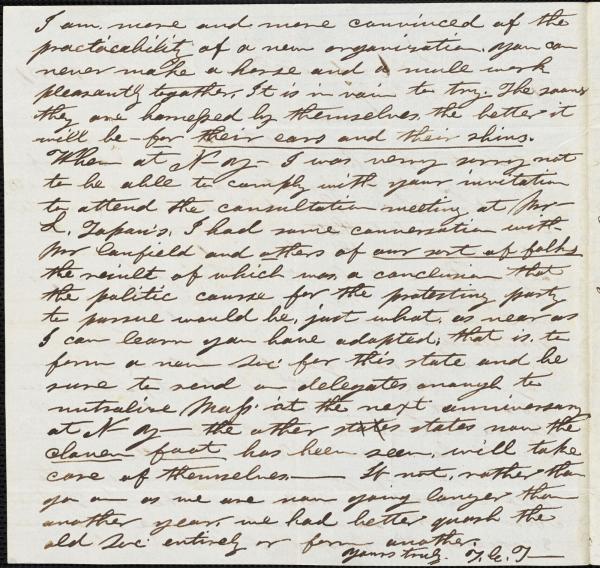 I am more and more convinced of the
practacability of a new organization. You can
never make a horse and a mule work
pleasantly together. It is in vain to try. The sooner
they are harnessed by themselves the better it
will be – for their ears and their shins.
When at N Y – I was verry sorry not
to be able to comply with your invitation
to attend the consultation meeting at Mr
L. Tapan's. I had some conversation with
Mr Canfield and others of our sort of folks
the result of which was a conclusion that
the politic course for the protesting party
to pursue would be, just what, as near as
I can learn you have adopted; that is, to
form a new Soc: for this state and be
sure to send on delegates enough to
nutralize Mass. at the next anniversary
at N Y – the other states now the
cloven foot has been seen, will take
care of themselves. — If not, rather than
go on as we are now going longer than
another year, we had better quash the
old Soc entirely or form another.
Yours truly. T. G. T—